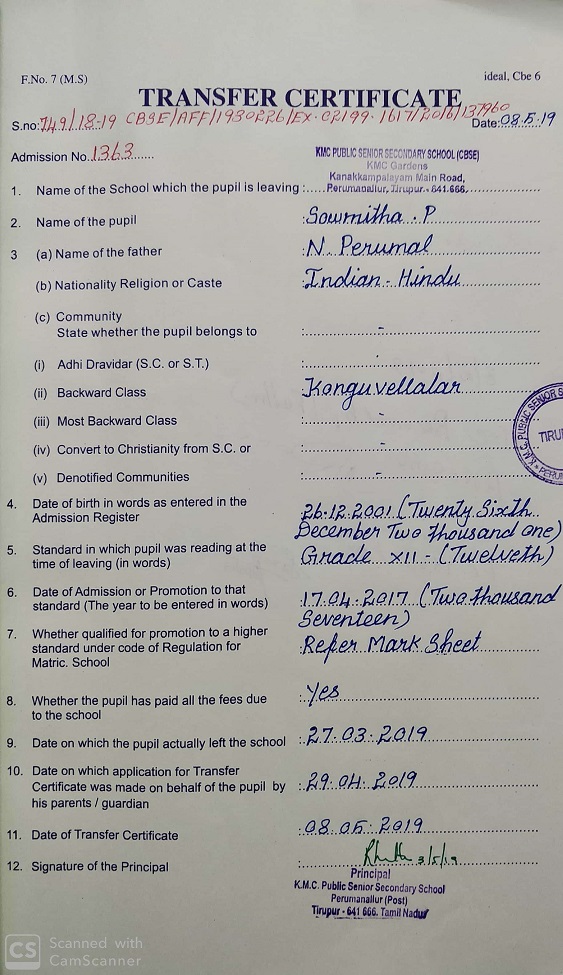 F.No. 7 (M.S)
ideal, Cbe 6
TRANSFER CERTIFICATE
S.no: 749/18-19 CBSE/AFF/1930226/EX-02199-1617/2016/137960
Date: 08.5.19
Admission No. 1363
KMC PUBLIC SENIOR SECONDARY SCHOOL (CBSE)
KMC Gardens
Kanakkampalayam Main Road,
1. Name of the School which the pupil is leaving : Perumanallur, Tirupur - 641 666.
2. Name of the pupil : Sowmitha . P
3 (a) Name of the father : N. Perumal
(b) Nationality Religion or Caste : Indian - Hindu
(c) Community
State whether the pupil belongs to : -
(i) Adhi Dravidar (S.C. or S.T.) :
(ii) Backward Class : Konguvellalar
(iii) Most Backward Class : -
(iv) Convert to Christianity from S.C. or : -
(v) Denotified Communities : -
4. Date of birth in words as entered in the : 26.12.2001 (Twenty Sixth
Admission Register December Two thousand one)
5. Standard in which pupil was reading at the : Grade XII - (Twelveth)
time of leaving (in words)
6. Date of Admission or Promotion to that : 17.04.2017 (Two thousand
standard (The year to be entered in words) Seventeen)
7. Whether qualified for promotion to a higher : Refer Mark Sheet
standard under code of Regulation for
Matric. School
8. Whether the pupil has paid all the fees due : Yes
to the school
9. Date on which the pupil actually left the school : 27.03.2019
10. Date on which application for Transfer : 29.04.2019
Certificate was made on behalf of the pupil by
his parents / guardian
11. Date of Transfer Certificate : 08.05.2019
12. Signature of the Principal :
Principal
K.M.C. Public Senior Secondary School
Perumanallur (Post)
Tirupur - 641 666. Tamil Nadu
K.M.C. PUBLIC SENIOR
CS Scanned with
CamScanner